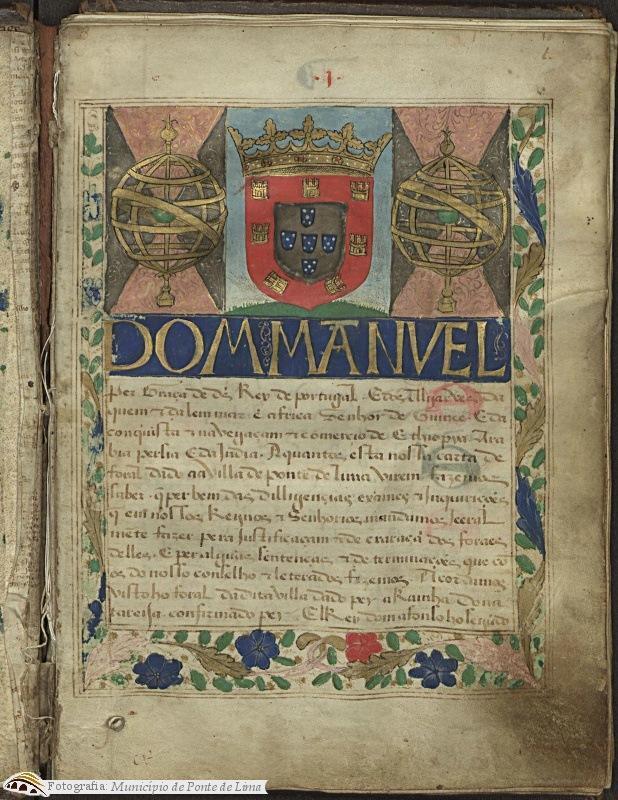 ·1·
DOM MANVEL
Per Graça de ds Rey de portugal · E dos Algarves da
quem & dalem mar e africa Senhor de Guinee · E da
conquista & navegaçam & comercio de Ethiopya Ara
bia persia E da India · A quantos esta nossa carta de
foral dado aa villa de ponte de lima virem fazemos
saber · q per bem das diligençias exames & Inquirições
q em nossos Reynos & Senhorios mandamos geeral
mete fazer pera justificaçam & decraraçã dos foraes
delles · E per alguas sentenças & determinações que co
os do nosso conselho & leterados fezemos Acordamos
visto ho foral da dita villa dado per a Rainha Dona
tareisa confirmado per El Rey dom afonso ho segũdo
Fotografia: Município de Ponte de Lima